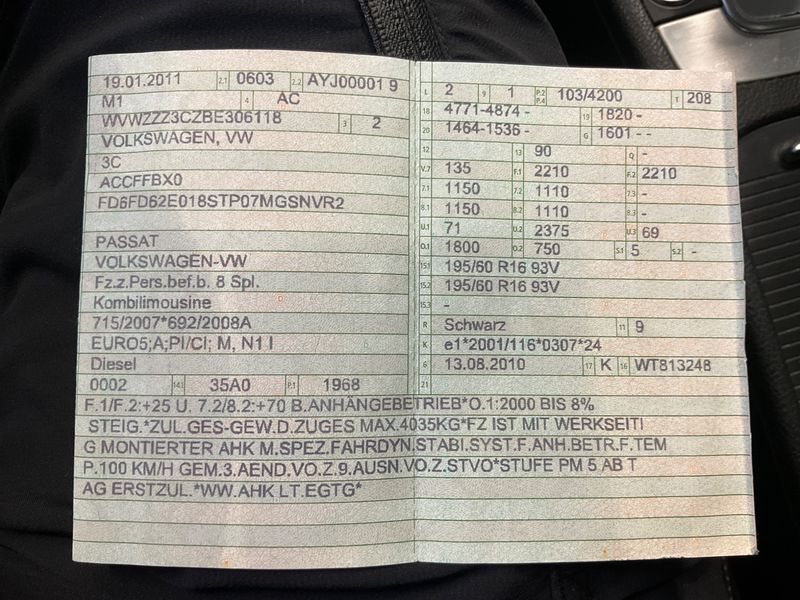 19.01.2011 2.1 0603 2.2 AYJ00001 9
M1 4 AC
WVWZZZ3CZBE306118 3 2
VOLKSWAGEN, VW
3C
ACCFFBX0
FD6FD62E018STP07MGSNVR2
PASSAT
VOLKSWAGEN-VW
Fz.z.Pers.bef.b. 8 Spl.
Kombilimousine
715/2007*692/2008A
EURO5;A;PI/CI; M, N1 I
Diesel
0002 14.1 35A0 P.1 1968
L 2 9 1 P.2 P.4 103/4200 T 208
18 4771-4874 - 19 1820 -
20 1464-1536 - G 1601 - -
12 13 90 Q -
V.7 135 F.1 2210 F.2 2210
7.1 1150 7.2 1110 7.3 -
8.1 1150 8.2 1110 8.3 -
U.1 71 U.2 2375 U.3 69
O.1 1800 O.2 750 S.1 5 S.2 -
15.1 195/60 R16 93V
15.2 195/60 R16 93V
15.3 -
R Schwarz 11 9
K e1*2001/116*0307*24
6 13.08.2010 17 K 16 WT813248
21
F.1/F.2:+25 U. 7.2/8.2:+70 B.ANHÄNGEBETRIEB*O.1:2000 BIS 8%
STEIG.*ZUL.GES-GEW.D.ZUGES MAX.4035KG*FZ IST MIT WERKSEITI
G MONTIERTER AHK M.SPEZ.FAHRDYN.STABI.SYST.F.ANH.BETR.F.TEM
P.100 KM/H GEM.3.AEND.VO.Z.9.AUSN.VO.Z.STVO*STUFE PM 5 AB T
AG ERSTZUL.*WW.AHK LT.EGTG*